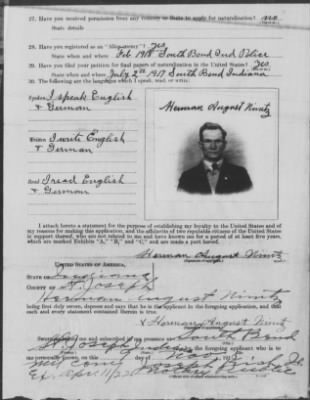 27. Have you received permission from any enemy or State to apply for naturalization? no
State details
28. Have you registered as an "alien enemy"? Yes
State when and where: Feb 1918 South Bend Ind Police
29. Have you filed your petition for final papers of naturalization in the United States? Yes
State when and where July 2nd 1917 South Bend Indiana
30. State the languages which I speak, read or write:
Spoken I speak English
& German
Written I write English
& German
Read I read English
& German
Herman August Nimtz
I attach hereto a statement for the purpose of establishing my loyalty to the United States and of
my reasons for making this application, and the affidavits of two reputable citizens of the United States
in support thereof, who are not related to me and have known me for a period of at least five years,
which are marked Exhibits "A," "B," and "C," and are made a part hereof.
Herman August Nimtz
UNITED STATES OF AMERICA,
STATE OF Indiana
COUNTY OF St Joseph
Herman August Nimtz
being first duly sworn, deposes and says that he is the applicant in the foregoing application, and that each
and every statement contained therein is true.
x Herman August Nimtz
Sworn to before me and subscribed in my presence at South Bend
St. Joseph Indiana by the foregoing applicant who is to
me personally known, on this day of Nov 1918
My Com
Ex. Apr 11/22 Notary Public